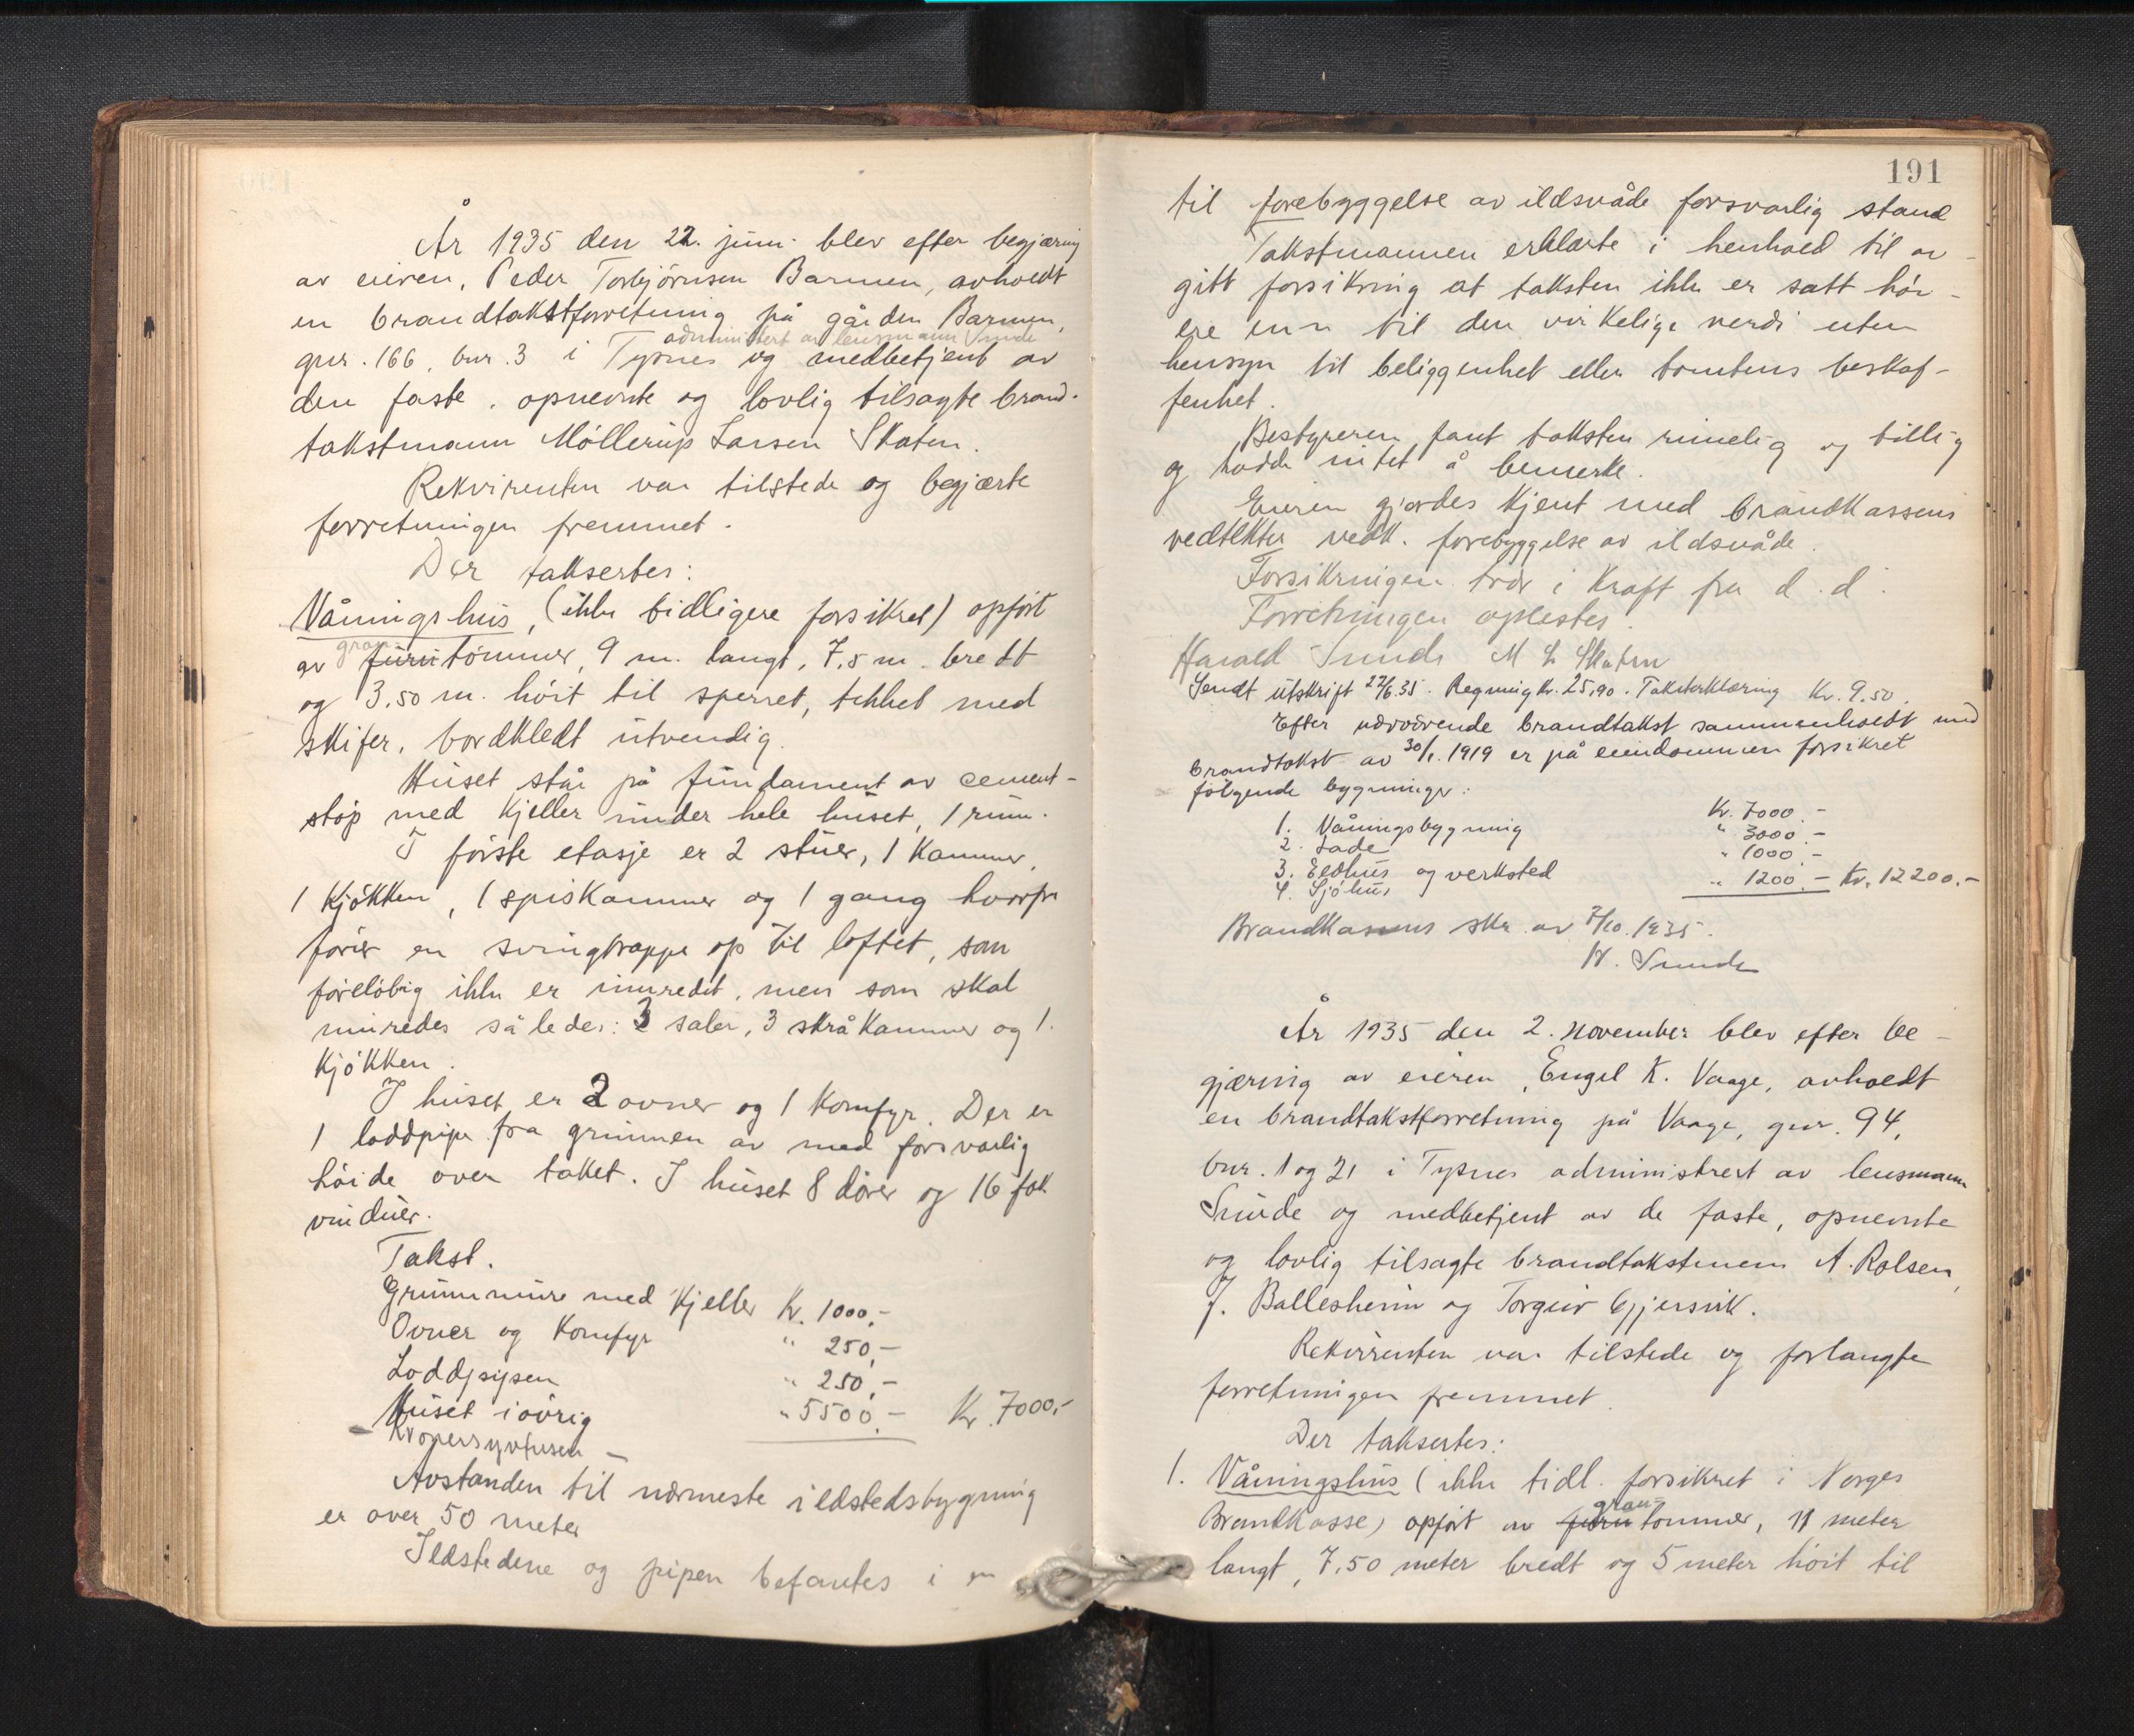 År 1935 den 22. juni blev efter begjæring
av eieren, Peder Torbjörnsen Barmen, avholdt
en brandtakstforretning på gården Barmen,
administrert av lensmann Sunde
gnr. 166, bnr. 3 i Tysnes og medbetjent av
den faste, opnevnte og lovlig tilsagte brand-
takstmann Möllerup Larsen Skaten.
Rekvirenten var tilstede og begjærte
forretningen fremmet.
Der taksertes:
Våningshus, (ikke tidligere forsikret) opfört
gran
av furutömmer, 9 m. langt, 7,5 m. bredt
og 3,50 m. höit til sperret, tekket med
skifer, bordkledt utvendig.
Huset står på fundament av cement-
stöp med kjeller under hele huset, 1 rum.
I förste etasje er 2 stuer, 1 kammer,
1 kjökken, 1 spiskammer og 1 gang hvorfra
förer en svingtrappe op til loftet, som
forelöbig ikke er innredet, men som skal
innredes således: 3 saler, 3 skråkammer og 1
kjökken.
I huset er 2 ovner og 1 komfyr. Der er
1 loddpipe fra grunnen av med forsvarlig
höide over taket. I huset 8 dörer og 16 fak
vinduer.
Takst.
Grunnmure med kjeller Kr. 1000,-
Ovner og komfyr " 250,-
Loddpipen " 250,-
Huset iövrig " 5500,- Kr. 7000,-
Avstanden til nærmeste ildstedsbygning
er over 50 meter
Ildstedene og pipen befantes i en
191
til forebyggelse av ildsvåde forsvarlig stand
Takstmannen erklærte i henhold til av-
gitt forsikring at taksten ikke er satt höi-
ere enn til den virkelige verdi uten
hensyn til beliggenhet eller tomtens beskaf-
fenhet.
Bestyreren fant taksten rimelig og billig
og hadde intet å bemerke.
Eieren gjordes kjent med brandkassens
vedtekter vedk. forebyggelse av ildsvåde.
Forsikringen trær i kraft fra d. d.
Forretningen oplestes.
Harald Sunde M L Skaten
Sendt utskrift 27/6.35. Regning kr. 25,90. Taksterklæring Kr. 9.50.
Efter nærværende brandtakst sammenholdt med
brandtakst av 30/1. 1919 er på eiendommen forsikret
fölgende bygninger:
1. Våningsbygning Kr. 7000.-
2. Lade " 3000.-
3. Eldhus og verksted " 1000.-
4. Sjöhus " 1200.- Kr. 12200.-
Brandkassens skr. av 7/10. 1935.
H. Sunde
År 1935 den 2. november blev efter be-
gjæring av eieren, Engel K. Vaage, avholdt
en brandtakstforretning på Vaage, gnr. 94,
bnr. 1 og 21 i Tysnes administrert av lensmann
Sunde og medbetjent av de faste, opnevnte
og lovlig tilsagte brandtakstmenn A. Rolsen,
J. Ballesheim og Torgeir Gjersvik.
Rekvirenten var tilstede og forlangte
forretningen fremmet.
Der taksertes:
1. Våningshus (ikke tidl. forsikret i Norges
gran-
Brandkasse) opfört av furutömmer, 11 meter
langt, 7,50 meter bredt og 5 meter höit til